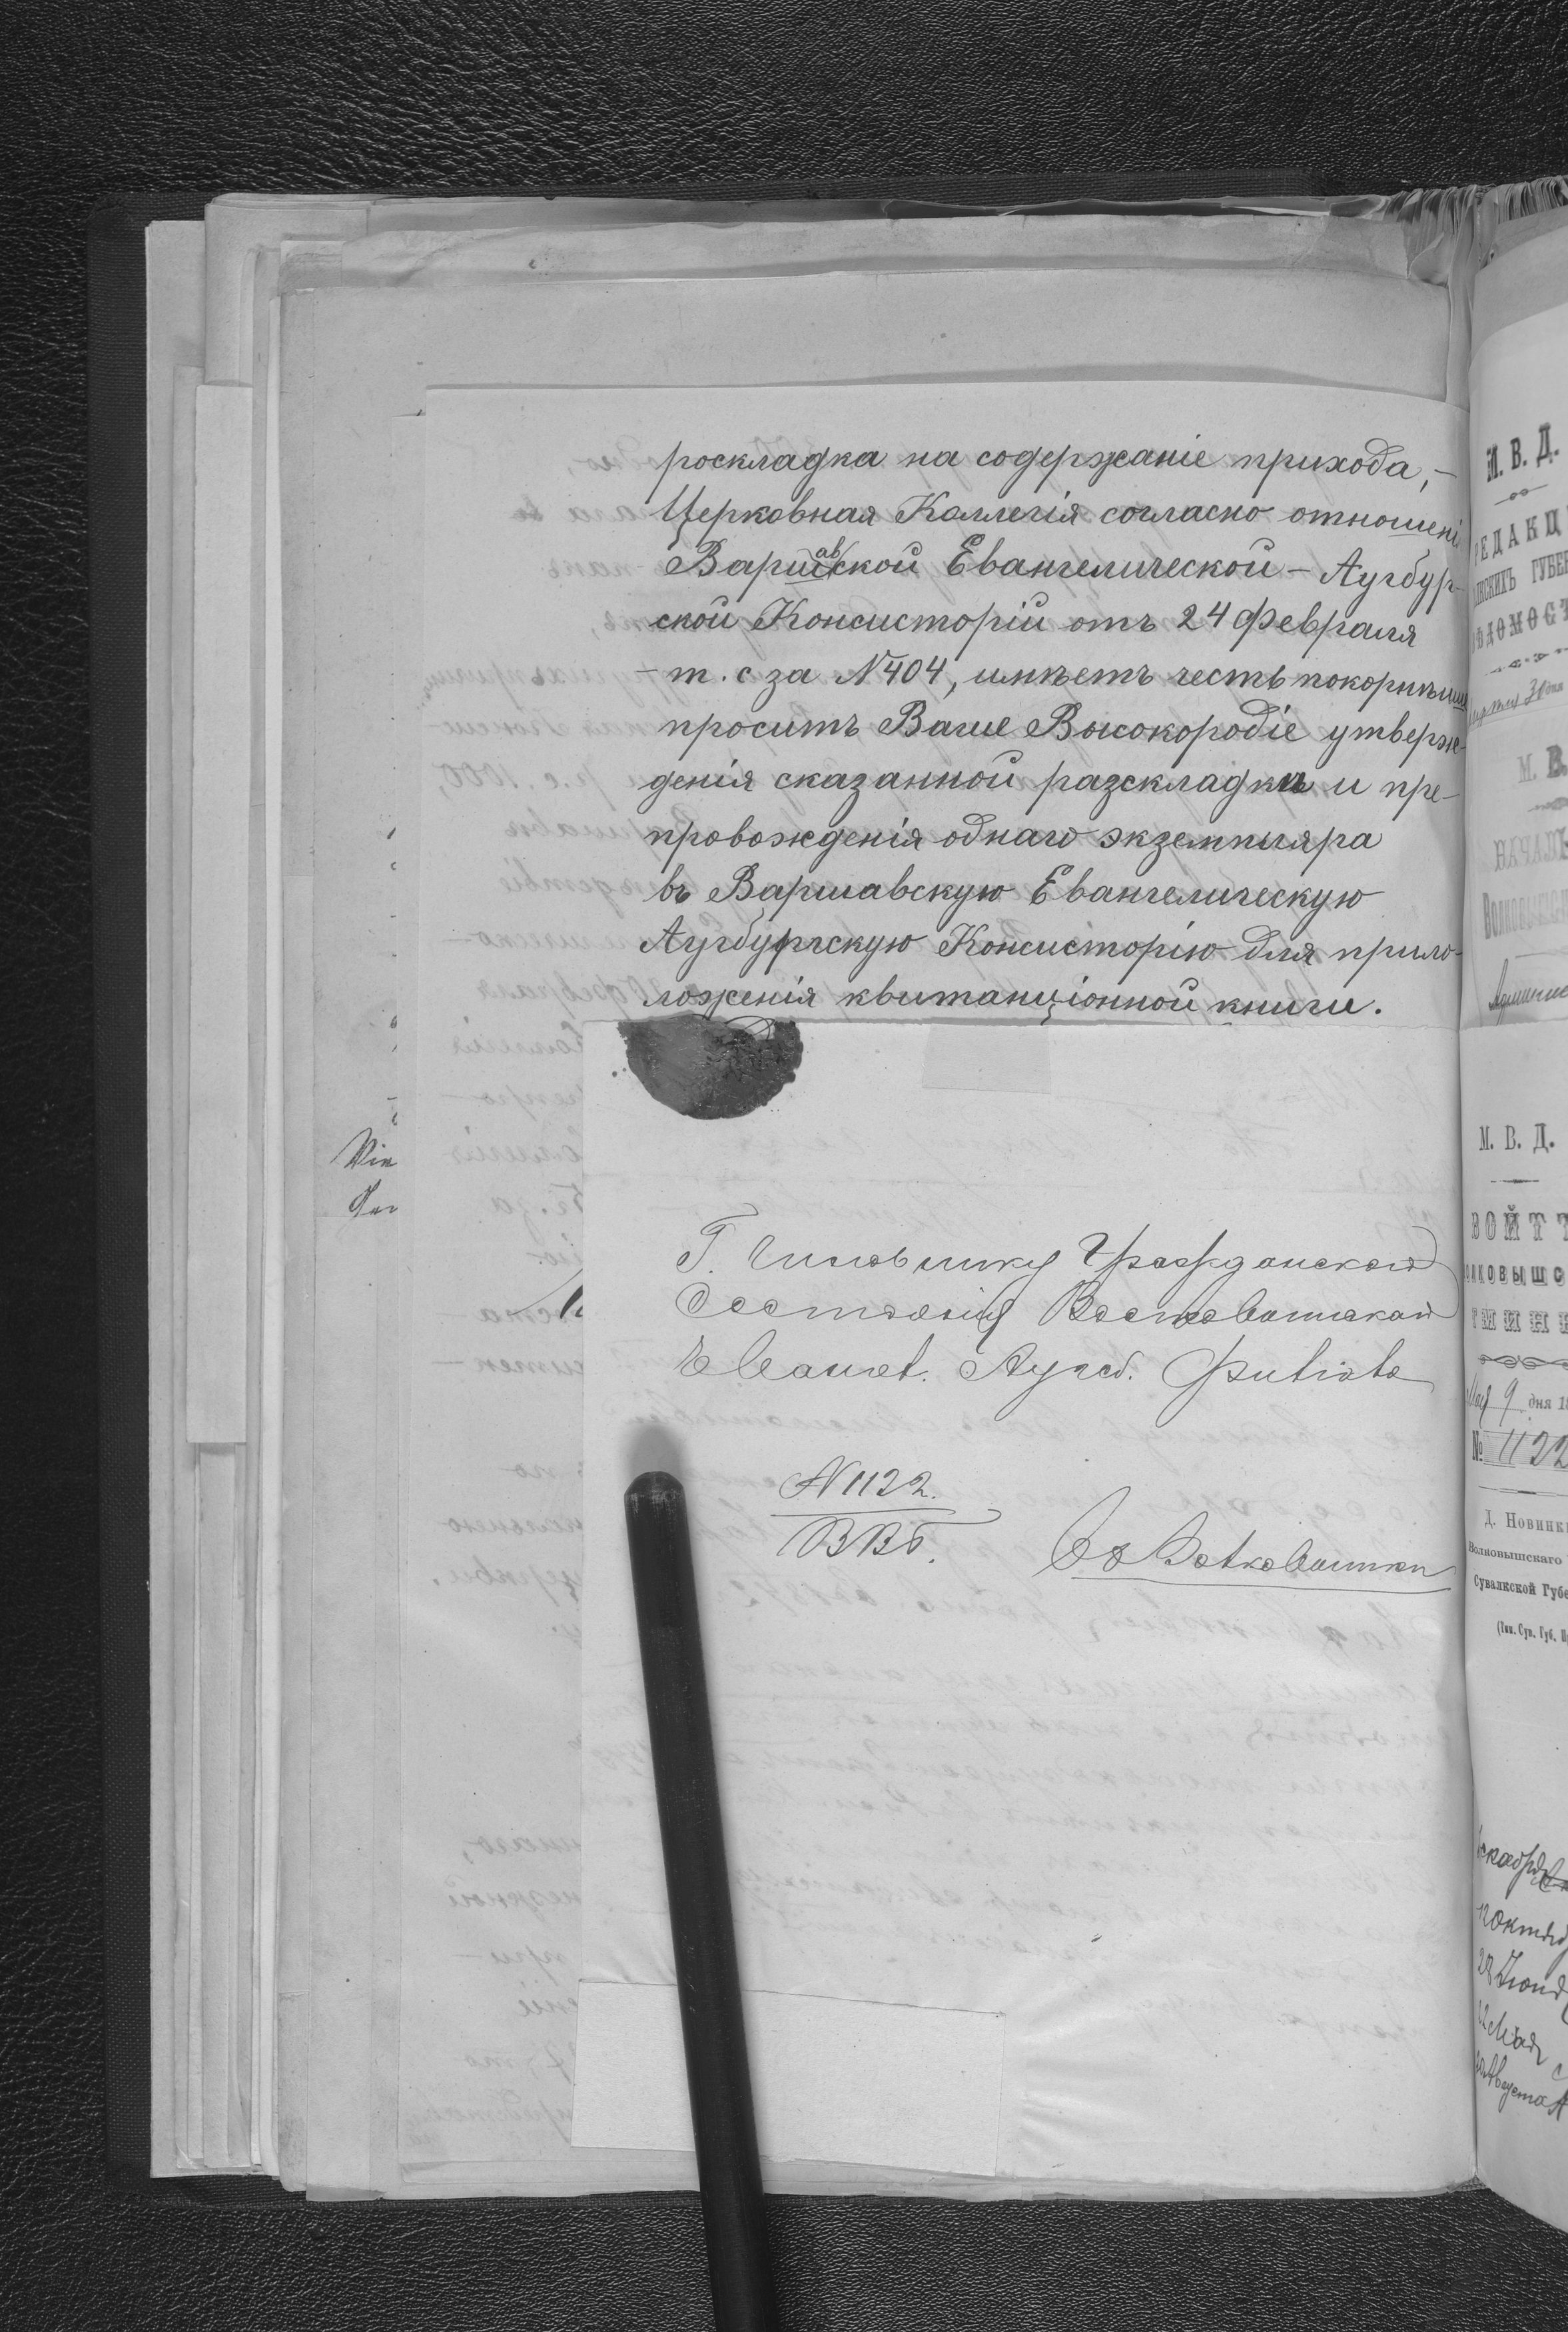 роскладка на содержаніе прихода,-
Церковная Коллегія согласно отношені
Варшавской Евангелической - Аугбур-
ской Консисторіи отъ 24 Февраля
- т. с за N 404, имѣетъ честь покорнѣйше
проситъ Ваше Высокородіе утверж-
денія сказанной разскладкѣ и пре-
провожденія однаго экземпляра
въ Варшавскую Евангелическую
Аугбургскую Консисторію для прило-
ложенія квитанціонной книги.
Г. Чиновнику Гражданскаго
Состоянія
Евангел. Аугсб.
N 1122.
ВВГ.
Въ Волковышки
М. В. Д.
ЕДАКЦ
ГУБЕР
ѢДОМОСТ
М. В.
НАЧАЛЬ
Волковышск
М. В. Д.
ВОЙТ
ОЛКОВЫШС
ГМИН
Мая 9 дня 18
№ 1122
Д. Новинк
Волковышскаго
Сувалкской Губе
(Тип. Сув. Губ. П
Октяб
28 Іюня
12 Мая
Августа